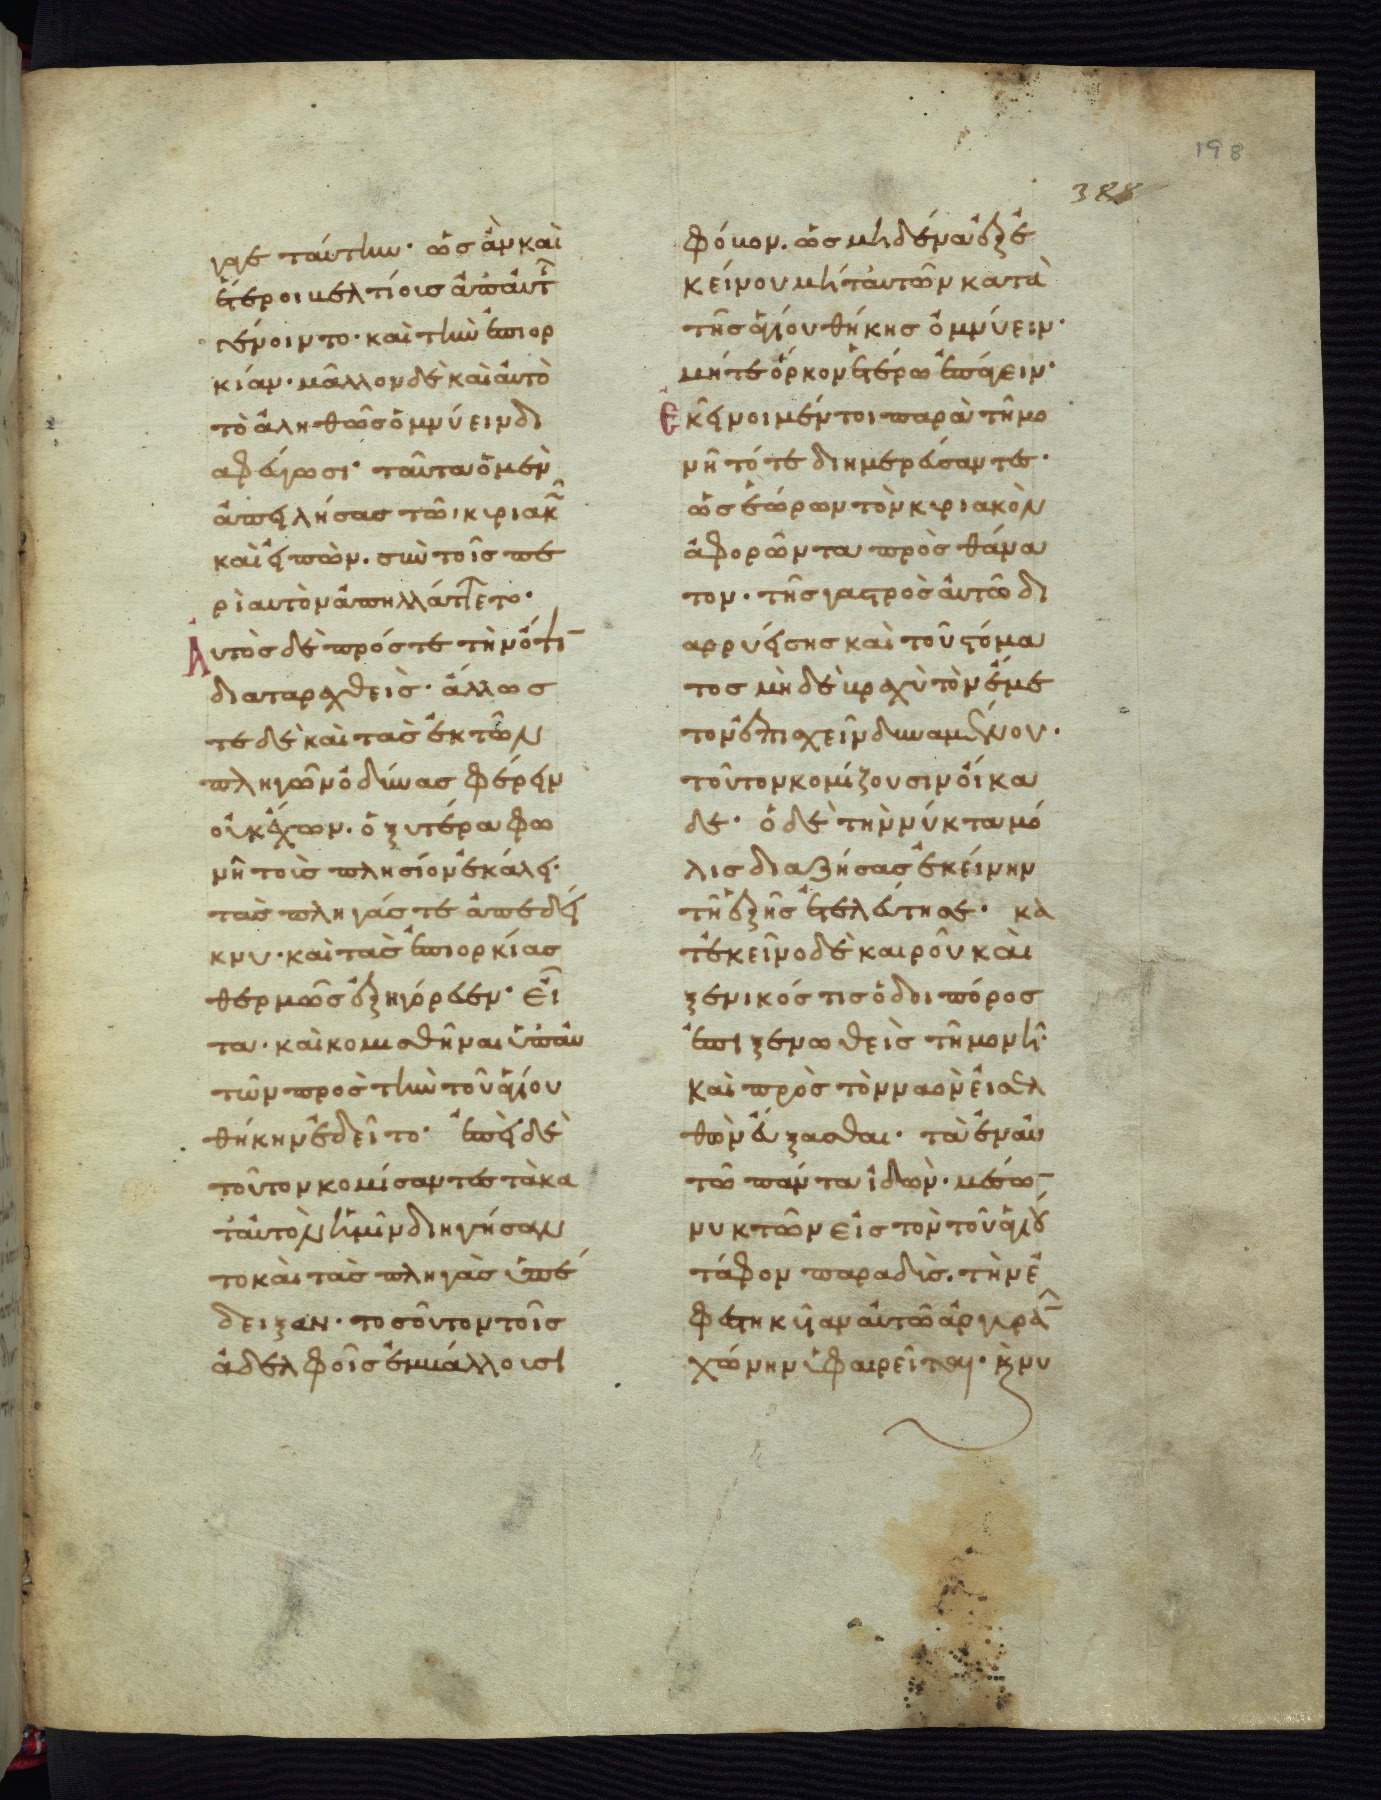 198
388
γαε ταύτην· ὡς ἂν καὶ
ἕτεροι βελτίους ἀπ' αὐτ
γένοιντο· καὶ τὴν ἐπιορ
κίαν· μᾶλλον δὲ καὶ αὐτὸ
τὸ ἀληθῶς ὀμνύειν δι
αφεύγωσι· ταῦτα ὁ μὲν
ἀπειλήσας τῶι κυριακῶ
καὶ εἰπὼν· σὺν τοῖς πε
ρὶ αὐτὸν ἀπηλλάττετο·
Αὐτὸς δὲ πρός τε τὴν ὄψιν
διαταραχθεὶς· ἄλλως
τε δὲ καὶ τὰς ἐκ τῶν
πληγῶν ὀδύνας φέρειν
οὐκ ἔχων· ὀξυτέρα φω
νῇ τοὺς πλησίον ἐκάλει·
τὰς πληγάς τε ἀπεδεί
κνυ· καὶ τὰς ἐπιορκίας
θερμῶς ἐξηγόρευεν· εἶ
τα· καὶ κομισθῆναι ὑπ' αὐ
τῶν πρὸς τὴν τοῦ ἁγίου
θήκην ἐδεῖτο· ἐπεὶ δὲ
τοῦτον κομίσαντες τὰ κα
τ' αὐτὸν ἡμῖν διηγήσαν
το καὶ τὰς πληγὰς ὑπέ
δειξαν· τοσοῦτον τοῖς
ἀδελφοῖς ἐμβάλλουσι
φόβον· ὡς μηδένα ἐξ ἐ
κείνου μήτ' αὐτῶν κατὰ
τῆς ἁγίου θήκης ὀμνύειν·
μήτε ὅρκον ἑτέρω ἐπάγειν·
Ἐκεῖνοι μέντοι παρὰ τῆ μο
νῆ τότε διημερεύσαντες·
ὡς ἑώρων τὸν κυριακὸν
ἀφορῶντα πρὸς θάνα
τον· τῆς γαστρὸς αὐτῶ δι
αρρυείσης καὶ τοῦ στόμα
τος μὴ δὲ βραχὺ τὸν ἔμε
τον ἐπισχεῖν δυναμένου·
τοῦτον κομίζουσιν οἴκα
δε· ὁ δὲ τὴν νύκτα μό
λις διαζήσας ἐκείνην
τῆ ἑξῆς ἐτελεύτησε· κα
τ' ἐκεῖνο δὲ καιροῦ καὶ
ξενικός τις ὁδοιπόρος
ἐπιξενωθεὶς τῆ μονῆ·
καὶ πρὸς τὸν ναὸν εἰσελ
θὼν εὔξασθαι· τὰ ἐν αὐ
τῶ πάντα ἰδὼν· μέσων
νυκτῶν εἰς τὸν τοῦ ἁγίου
τάφον παραδὺς· τὴν ἐ
φεστηκυῖαν αὐτῶ ἀργυρᾶν
χώνην ὑφαιρεῖται· ἦν